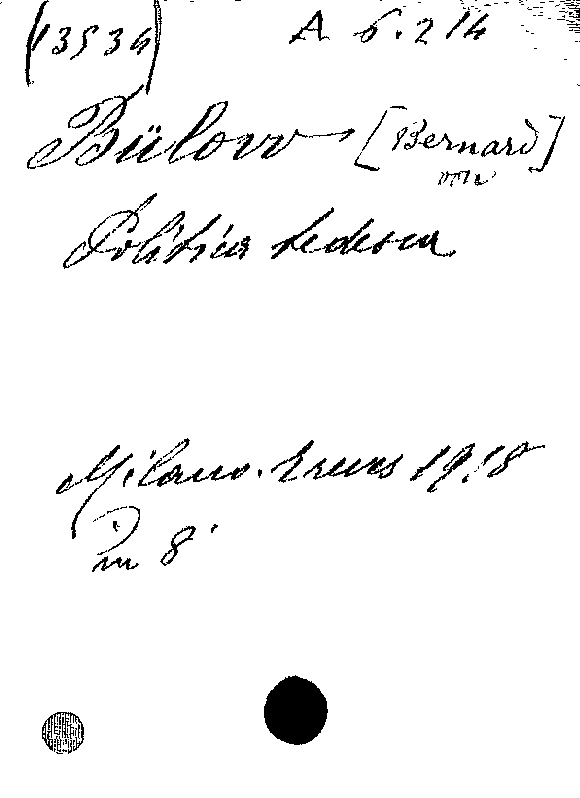 (13536) A 6. 214
Bülow [Bernard
von]
Politica tedesca
Milano. Treves 1918
in 8°